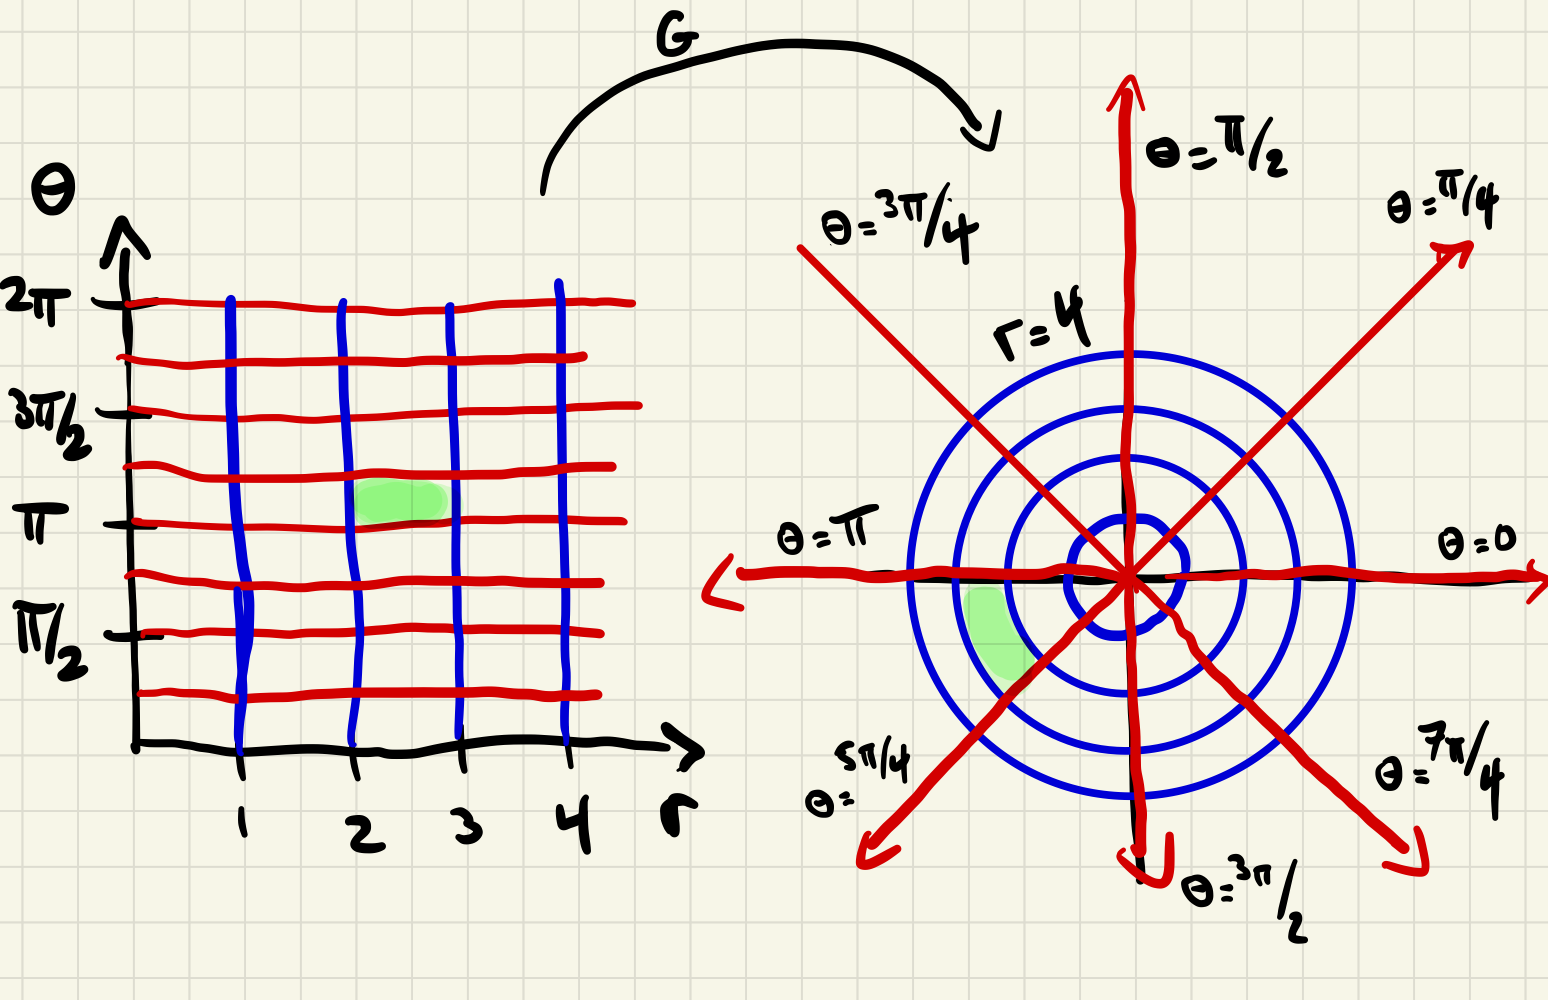 G
θ
2π
3π/2
π
π/2
1
2
3
4
r
θ=π/2
θ=π/4
θ=3π/4
r=4
θ=π
θ=0
θ=5π/4
θ=7π/4
θ=3π/2